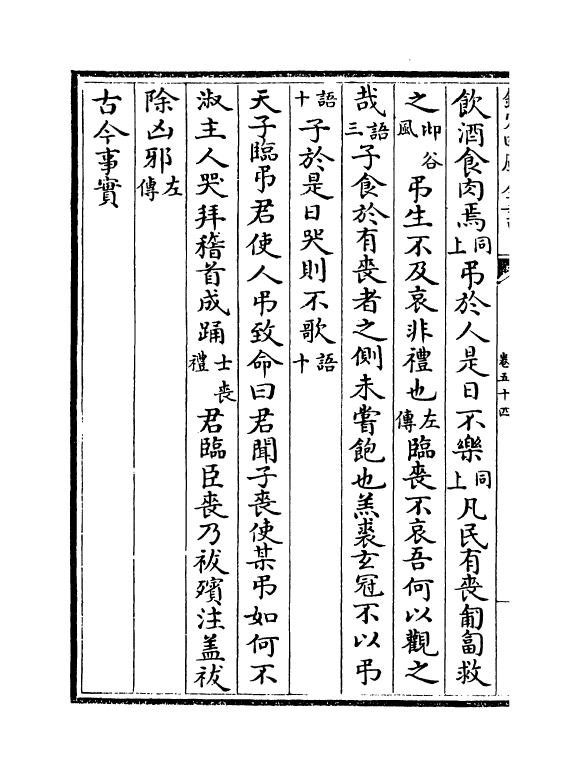 卷五十四
飲酒食肉焉同上弔於人是日不樂同上凡民有喪匍匐救
之邶谷風弔生不及哀非禮也左傳臨喪不哀吾何以觀之
哉語三子食於有喪者之側未嘗飽也羔裘玄冠不以弔
語十子於是日哭則不歌語十
天子臨弔君使人弔致命曰君聞子喪使某弔如何不
淑主人哭拜稽首成踊士喪禮君臨臣喪乃祓殯注盖祓
除凶邪左傳
古今事實